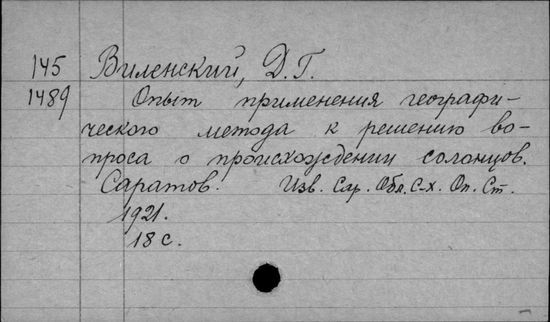 145 Виленский, Д.Г.
1489 Опыт применения географи-
ческого метода к решению во-
проса о происхождении солонцов.
Саратов. Изв. Сар. Обл. С-х. Оп. Ст.
1921.
18 с.